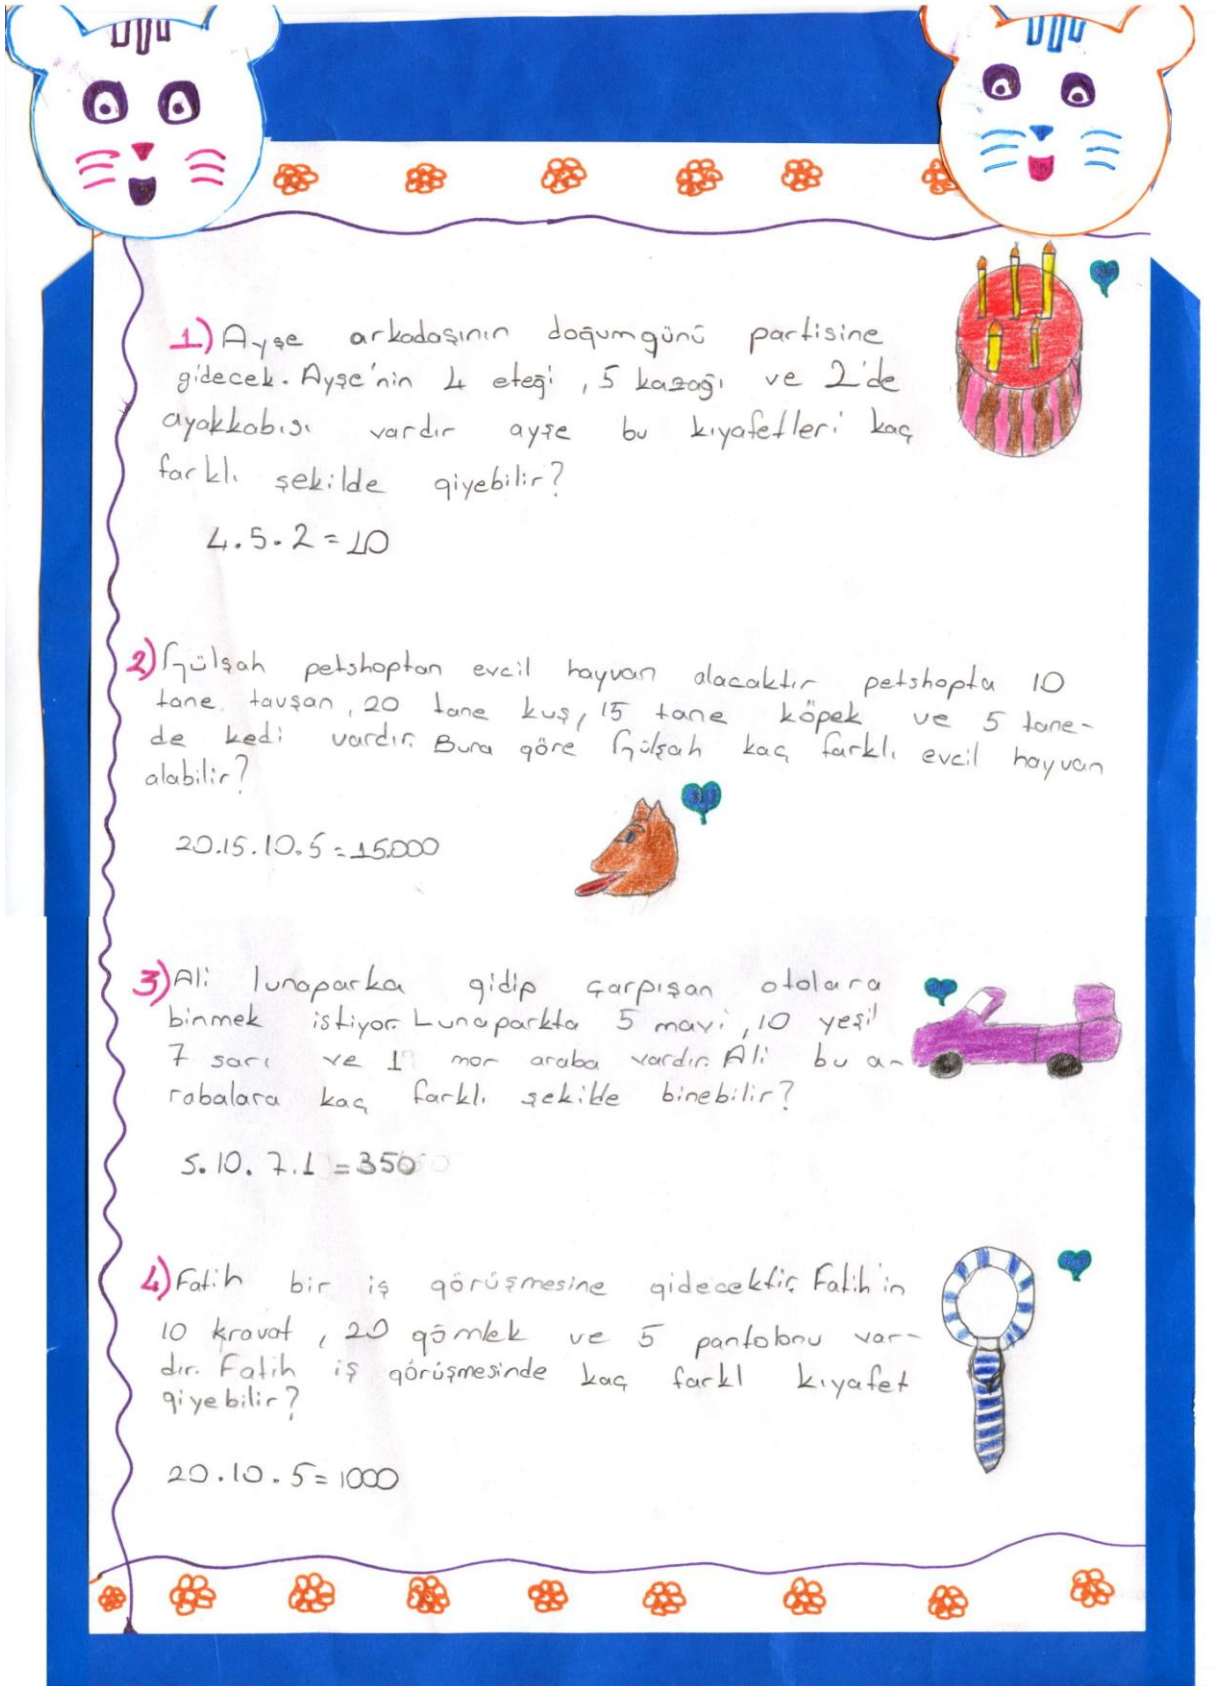 1) Ayşe arkadaşının doğumgünü partisine
gidecek. Ayşe'nin 4 eteği, 5 kazağı ve 2'de
ayakkabısı vardır ayşe bu kıyafetleri kaç
farklı şekilde giyebilir?
4.5.2=10
2) Gülşah petshoptan evcil hayvan alacaktır petshopta 10
tane tavşan, 20 tane kuş, 15 tane köpek ve 5 tane-
de kedi vardır. Buna göre Gülşah kaç farklı evcil hayvan
alabilir?
20.15.10.5=15.000
3) Ali lunaparka gidip çarpışan otolara
binmek istiyor. Lunaparkta 5 mavi, 10 yeşil
7 sarı ve 1 mor araba vardır. Ali bu a-
rabalara kaç farklı şekilde binebilir?
5.10.7.1=350
4) Fatih bir iş görüşmesine gidecektir. Fatih'in
10 kravat, 20 gömlek ve 5 pantolonu var-
dır. Fatih iş görüşmesinde kaç farkl kıyafet
giyebilir?
20.10.5=1000